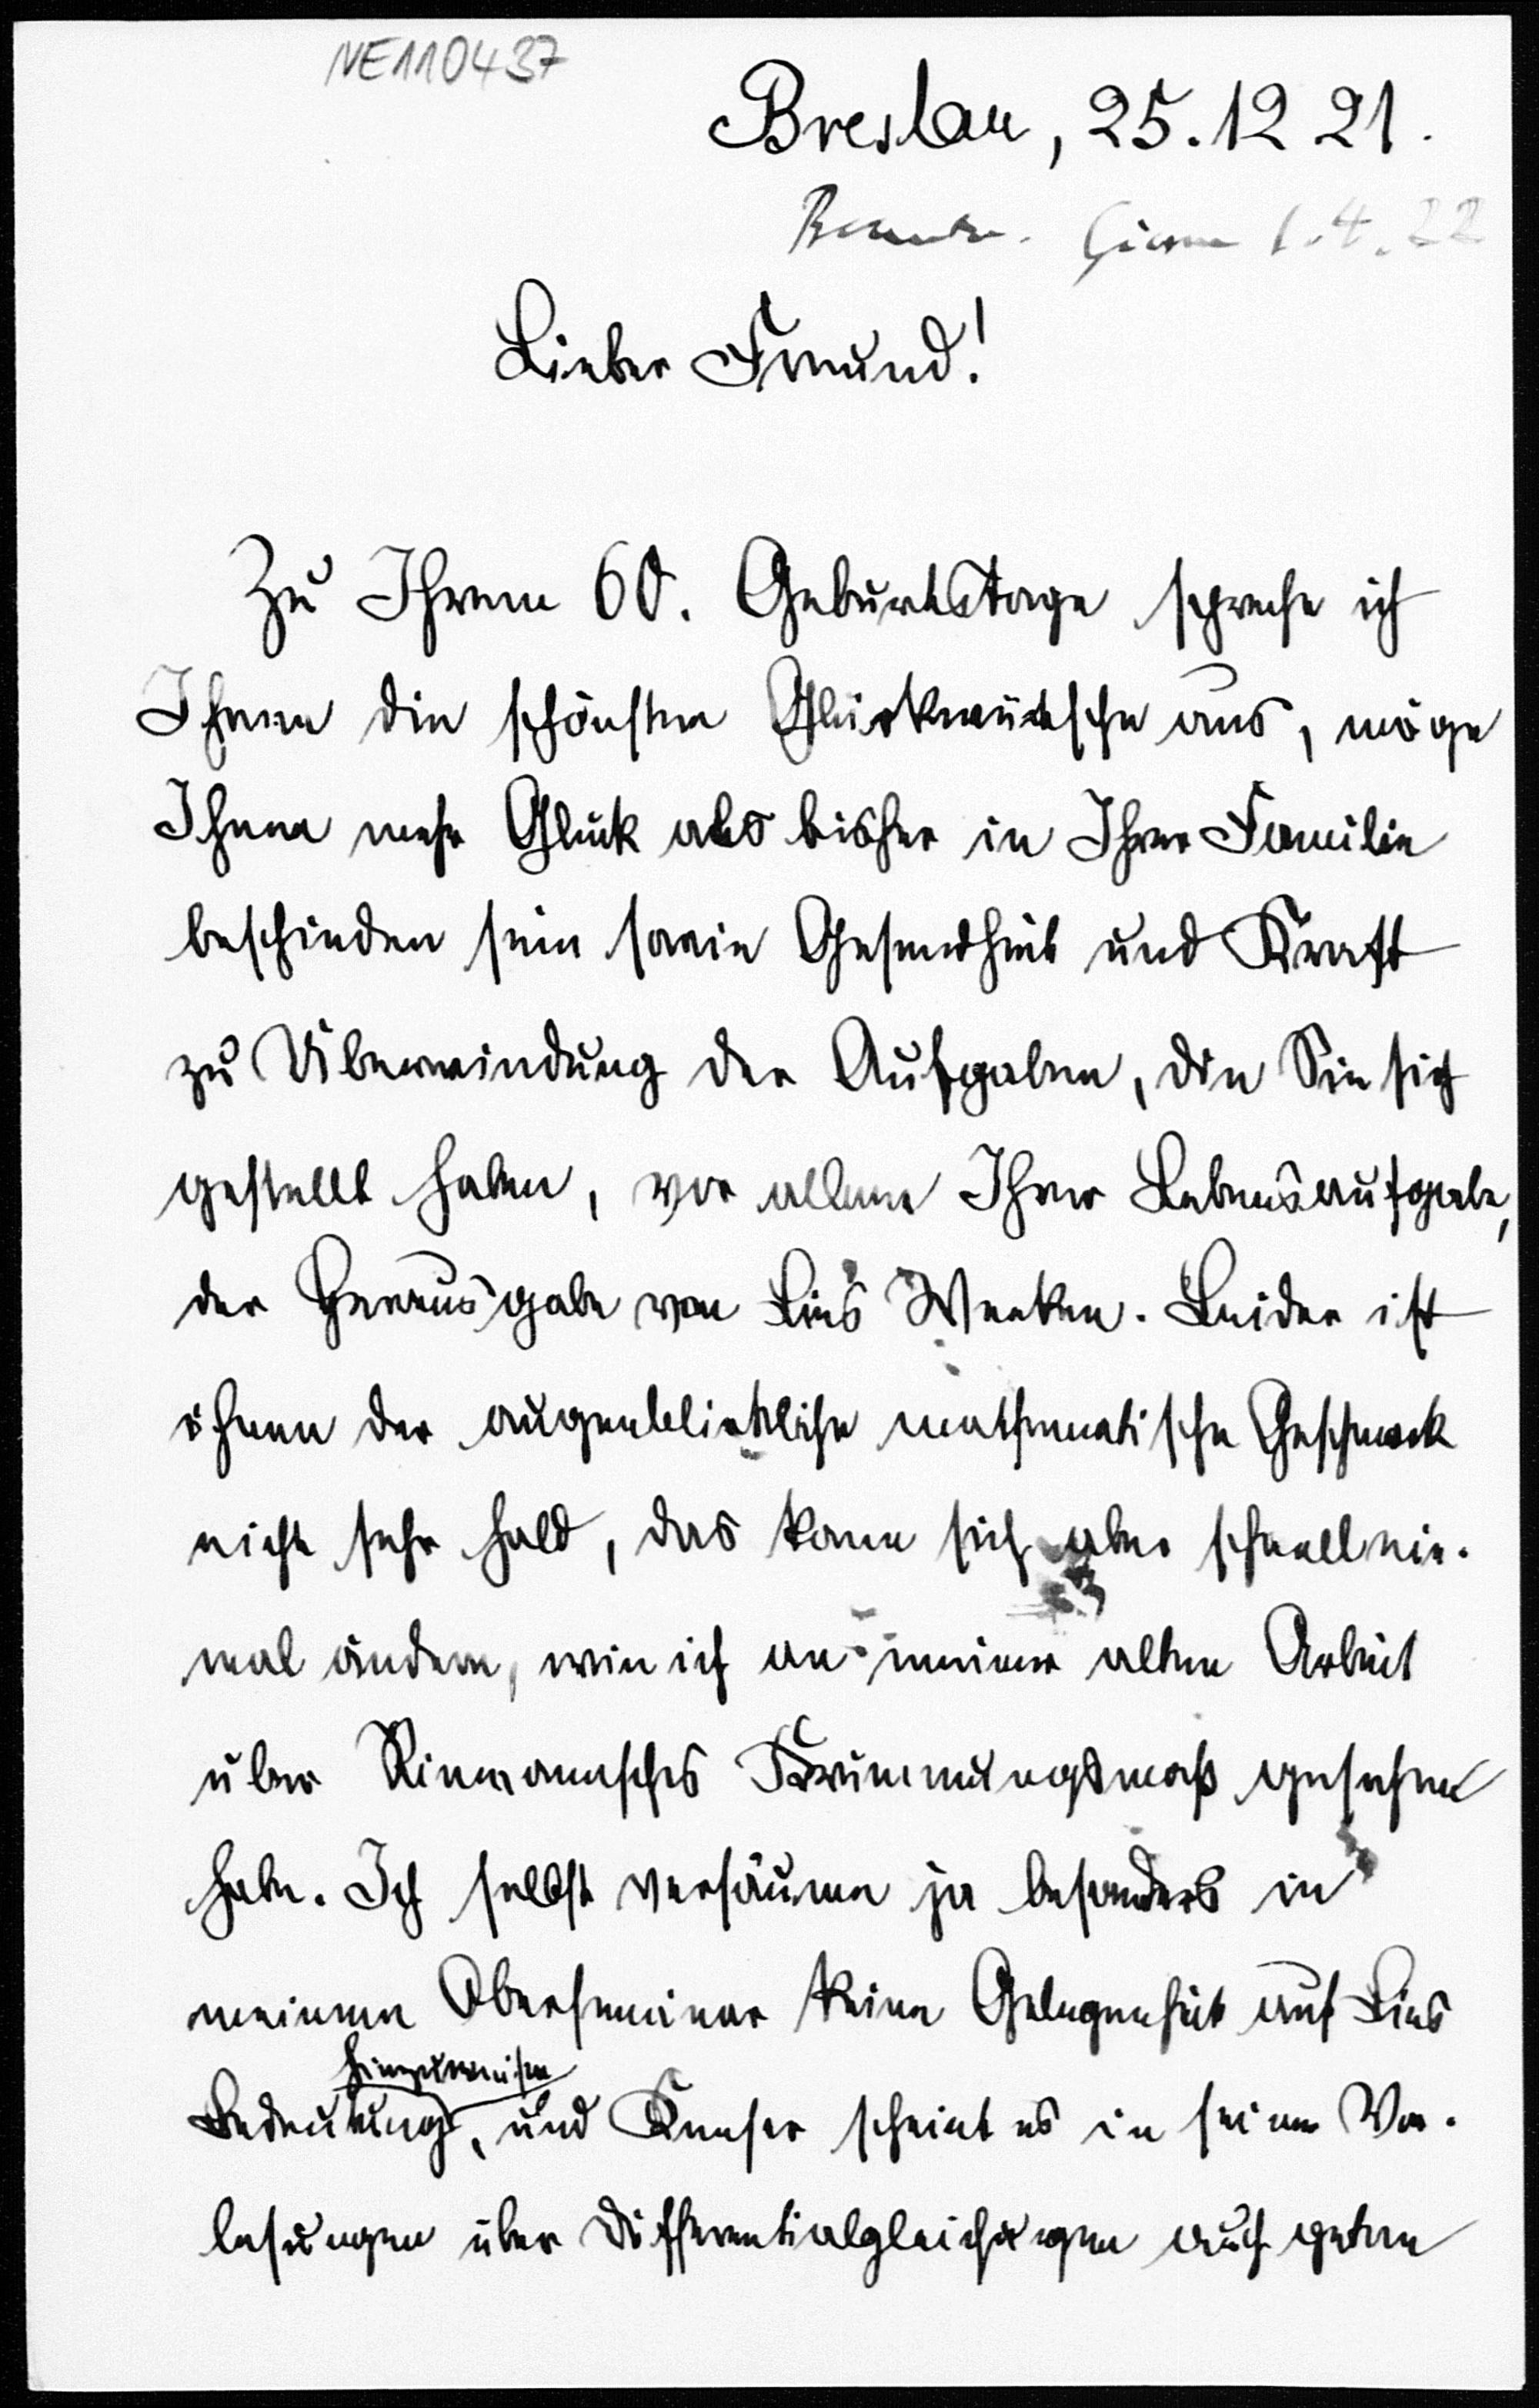 NE110437
Breslau, 25.12 21.
Beantw. Giessen 1.4.22
Lieber Freund!
Zu Ihrem 60. Geburtstage spreche ich
Ihnen die schönsten Glückwünsche aus, möge
Ihnen mehr Glück als bisher in Ihrer Familie
beschieden sein sowie Gesundheit und Kraft
zu Überwindung der Aufgaben, die Sie sich
gestellt haben, vor allem Ihrer Lebensaufgabe,
der Herausgabe von Lies Werken. Leider ist
ihnen der augenblickliche mathematische Geschmack
nicht sehr hold, das kann sich aber schnell ein-
mal ändern, wie ich an meiner alten Arbeit
über Riemannsches Krümmungsmaß gesehen
habe. Ich selbst versäume ja besonders in
meinem Oberseminar keine Gelegenheit auf Lies
hinzuweisen
Bedeutung, und Kneser scheint es in seinen Vor-
lesungen über Differentialgleichungen auch getan